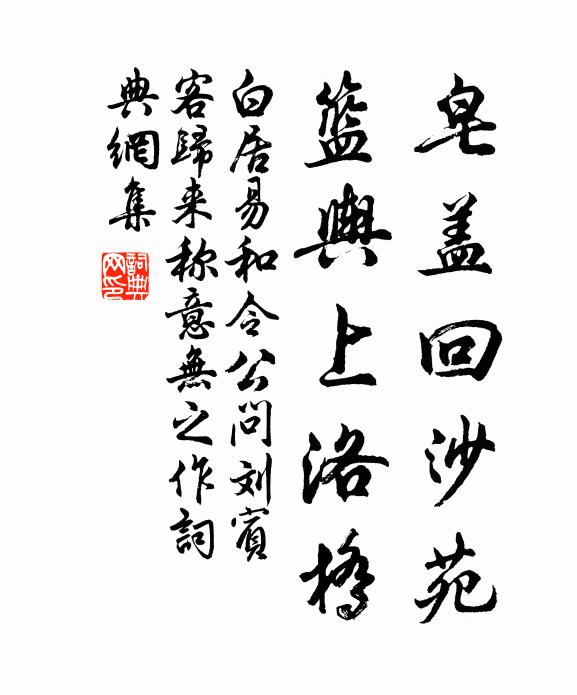 皂盖回沙苑
籃輿上洛橋
白居易和令公問刘賓
客歸来称意無之作詞
典網集
詞典网印